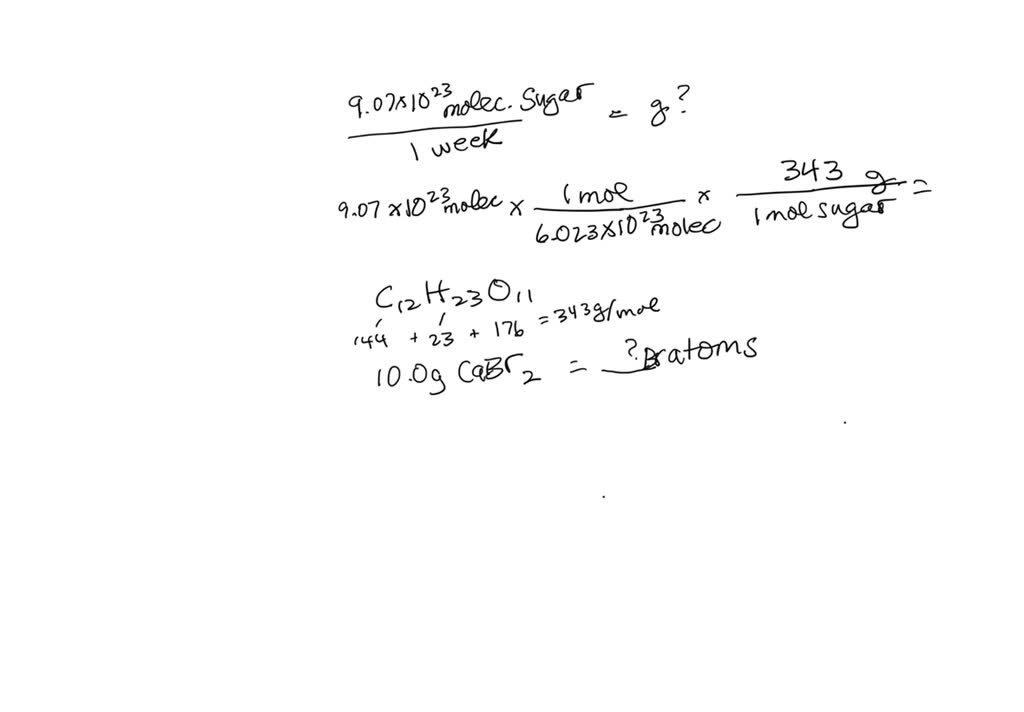 9.07×10²³ molec. Sugar / 1 week = g?
9.07×10²³ molec × 1 mol / 6.023×10²³ molec × 343 g / 1 mol sugar =
C₁₂H₂₃O₁₁
144 + 23 + 176 = 343g/mol
10.0g CaBr₂ = ? Br atoms